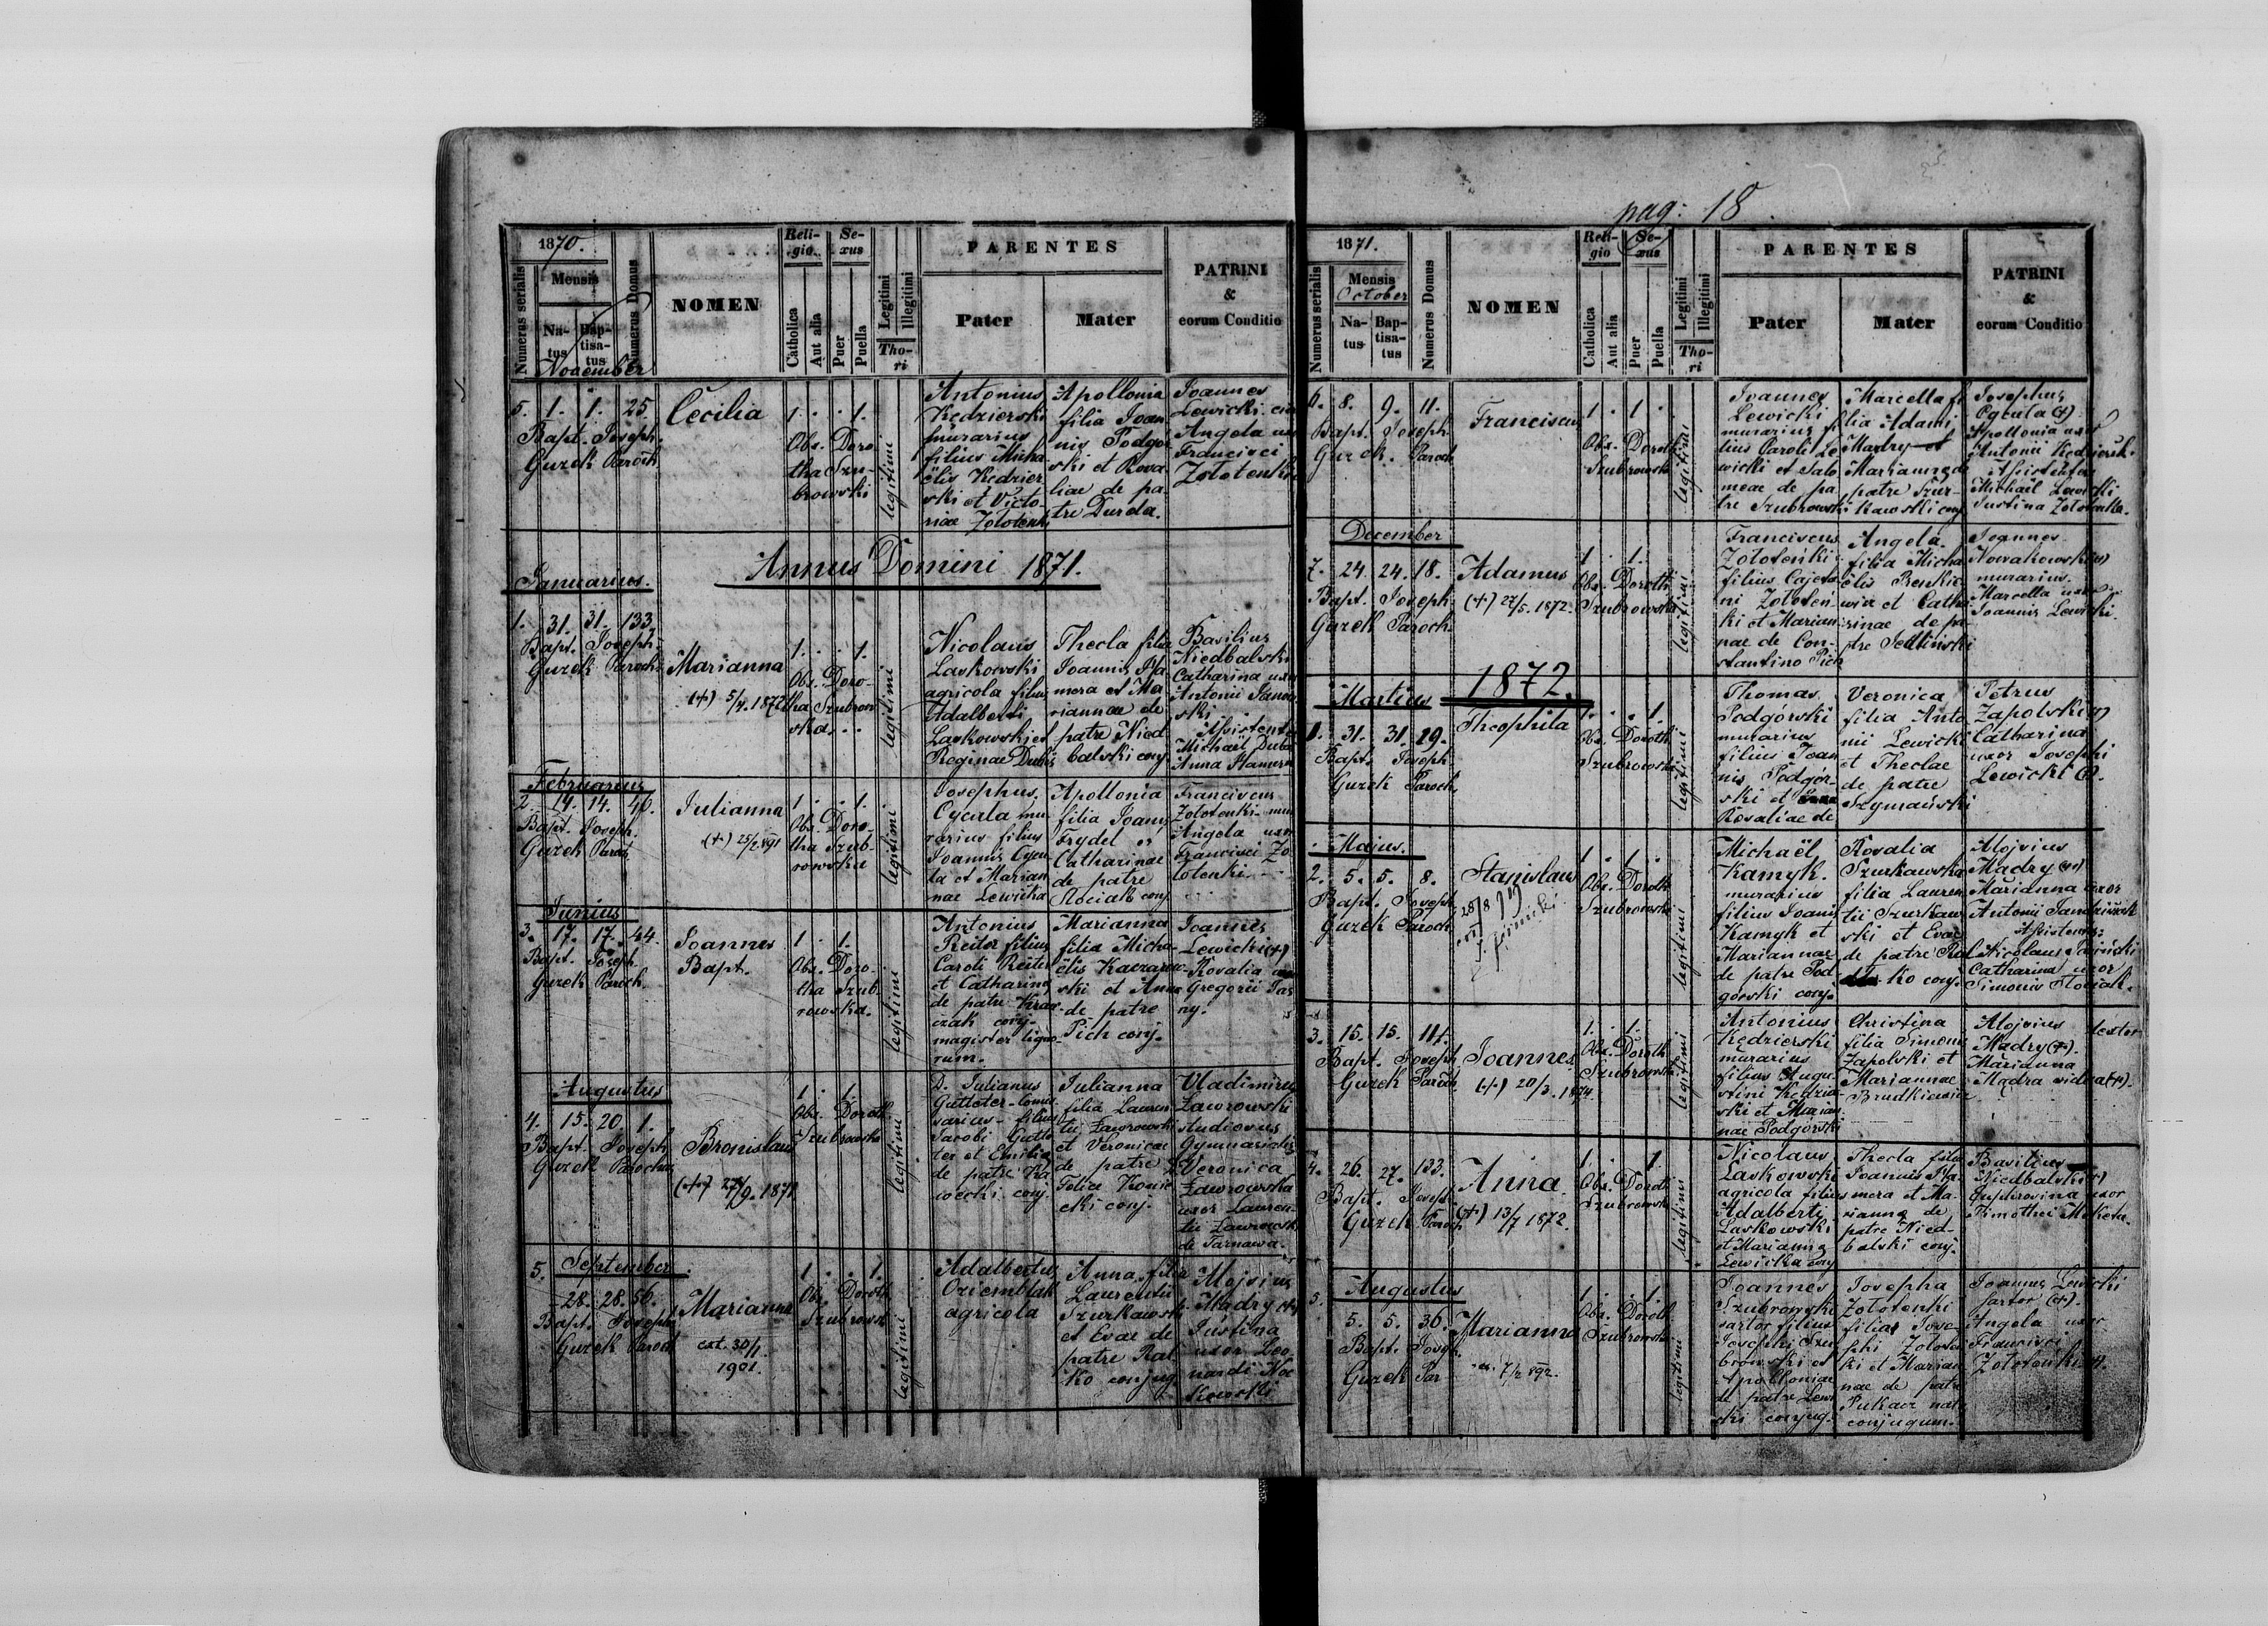 pag: 18
1870.
Religio
Sexus
PARENTES
PATRINI
&
eorum Conditio
Numerus serialis
Mensis
Natus
Baptisatus
November
Numerus Domus
NOMEN
Catholica
Aut alia
Puer
Puella
Legitimi
Illegitimi
Thori
Pater
Mater
5. 1. 1. 25.
Bapt. Joseph
Guzek Paroch
Cecilia
1. . . 1.
Obs. Doro-
tha Szu-
browski
legitimi
Antonius
Kędzierski
murarius
filius Micha
ëlis Kędzier
ski et Victo-
riae Zołotenki
Apollonia
filia Joan
nis Podgór
ski et Rosa
liae de pa-
tre Durda.
Joannes
Lewicki
Angela
Francisci
Zołotenki
Annus Domini 1871.
Januarius.
1. 31. 31. 133
Bapt. Joseph
Guzek Paroch
Marianna
(+) 5/4. 1872
1. . . 1.
Obs. Doro-
tha Szubrow
ska. . .
legitimi
Nicolaus
Laskowski
agricola filius
Adalberti
Laskowski et
Reginae
Thecla filia
Joannis
mera et Ma
riannae de
patre Nied
balski conj.
Basilius
Niedbalski
Catharina uxor
Antonii
ski
Assistentes
Michael
Anna
Februarius
2. 14. 14. 46.
Bapt. Joseph.
Guzek Paroch
Julianna
(+) 25/2 891
1. . . 1.
Obs. Doro-
tha Szub-
rowska
legitimi
Josephus
Cycula mu
rarius filius
Joannis Cycu
la et Marian
nae Lewicka
Apollonia
filia Joannis
Frydel
Catharinae
de patre
Słociak conj.
Franciscus
Zołotenki
Angela uxor
Francisci Zo
łotenki
Junius
3. 17. 17. 44.
Bapt. Joseph
Guzek Paroch.
Joannes
Bapt.
1. . 1.
Obs. Doro-
tha Szub
rowska.
legitimi
Antonius
Reiter filius
Caroli Reiter
et Catharina
de patre Kraw
czak conj.
magister ligno-
rum.
Marianna
filia Micha-
ëlis
ski et Anna
de patre
Pich conj.
Joannes
Lewicki (+)
Rosalia
Gregorii
ny.
Augustus
4. 15. 20. 1.
Bapt. Joseph
Guzek Parochus
Bronislaus
(+) 27/9. 1871
1. . 1.
Obs. Doroth
Szubrowska
legitimi
D. Julianus
Gutteter
sarius filius
Jacobi Gutte
ter et Emilia
de patre
conj.
Julianna
filia Lauren
tii Ławrowski
et Veronicae
de patre
conj.
Vladimirus
Ławrowski
studiosus
Gymnasialis
Veronica
Ławrowska
uxor Lauren-
tii Ławrowski
de Tarnawa.
September
5. 28. 28. 56.
Bapt. Joseph
Guzek Paroch
Marianna
ext. 30/1.
1901.
1. . . 1.
Obs. Doroth
Szubrowsk
legitimi
Adalbertus
Oziemblak
agricola
Anna filia
Laurentii
Szurkawski
et Evae de
patre Rat
ko conjug
Alojsius
Mądry (+)
Justina
uxor Leo-
nardi No
kowski
1871.
Religio
Sexus
PARENTES
PATRINI
&
eorum Conditio
Numerus serialis
Mensis
October
Natus
Baptisatus
Numerus Domus
NOMEN
Catholica
Aut alia
Puer
Puella
Legitimi
Illegitimi
Thori
Pater
Mater
6. 8. 9. 11.
Bapt. Joseph
Guzek. Paroch
Franciscus
1 . 1 .
Obs. Doroth
Szubrowska
legitimi
Joannes
Lewicki
murarius fi
lius Caroli Le
wicki et Salo
meae de pa
tre Szubrowski
Marcella fi
lia Adami
Mądry et
Marianna de
patre Szur-
kawski conj.
Josephus
Cycula (+)
Apollonia uxor
Antonii Kędzierski
Assistentes
Michaël Lewicki
Justina Zołotenka.
December
7. 24. 24. 18.
Bapt. Joseph
Guzek Paroch.
Adamus
(+) 27/5. 1872.
1 . 1.
Obs. Doroth
Szubrowska
legitimi
Franciscus
Zołoteńki
filius Cajeta
ni Zołoteń
ki et Marian
nae de Con-
stantino Pich
Angela
filia Micha
ëlis Benkie
wicz et Catha
rinae de pa-
tre Jedliński
Joannes
Nowakowski (+)
murarius.
Marcella uxor
Joannis Lewicki.
1872.
Martius
1. 31. 31. 29.
Bapt. Joseph
Guzek Paroch.
Theophila
1. . . 1.
Obs. Doroth
Szubrowska
legitimi
Thomas
Podgórski
murarius
filius Joan
nis Podgór-
ski et
Rosaliae de
Veronica
filia Anto
nii Lewicki
et Theclae
de patre
Szymański
Petrus
Zapolski (+)
Catharina
uxor Josephi
Lewicki (+).
Majus.
2. 5. 5. 8.
Bapt. Joseph
Guzek Paroch
Stanislaus
28/8 919
1 . 1 .
Obs. Doroth
Szubrowska
legitimi
Michaël
Kamyk.
murarius
filius Joannis
Kamyk et
Mariannae
de patre Pod
górski conj.
Rosalia
Szurkawska
filia Lauren
tii Szurkaw
ski et Evae
de patre Rat
ko conj.
Alojsius
Mądry (+)
Marianna uxor
Antonii
Assistentes:
Nicolaus
Catharina uxor
Simonis Słociak.
3. 15. 15. 111.
Bapt. Joseph
Guzek Paroch
Joannes
(+) 20/3. 1874
1. . 1.
Obs. Doroth
Szubrowska
legitimi
Antonius
Kędzierski
murarius
filius Augu
stini Kędzier
ski et Marian
nae Podgórski
Christina
filia Simonis
Zapolski et
Mariannae
Brudkiewicz
Alojsius textor
Mądry (+).
Marianna
Mądra vidua (+).
4. 26. 27. 133.
Bapt. Joseph
Guzek Paroch
Anna
(+) 13/7 1872.
1. . . 1
Obs. Doroth
Szubrowska
legitimi
Nicolaus
Laskowski
agricola filius
Adalberti
Laskowski
et Marianna
Lewicka conj
Thecla filia
Joannis
mera et Ma-
rianna de
patre Nied-
balski conj.
Basilius
Niedbalski (+)
Euphrosina uxor
Timothei
5. Augustus
5. 5. 36.
Bapt. Joseph
Guzek Par
Marianna
7/2 892.
1. . . 1.
Obs. Doroth
Szubrowska
legitimi
Joannes
Szubrowski
sartor filius
Josephi Szu
browski et
Apolloniae
de patre Lewi
cki conjug.
Josepha
Zołotenki
filia Jose-
phi Zołoten
ki et Marian
nae de patre
Pukacz nat.
conjugum.
Joannes Lewicki
sartor (+).
Angela uxor
Francisci
Zołotenki (+).